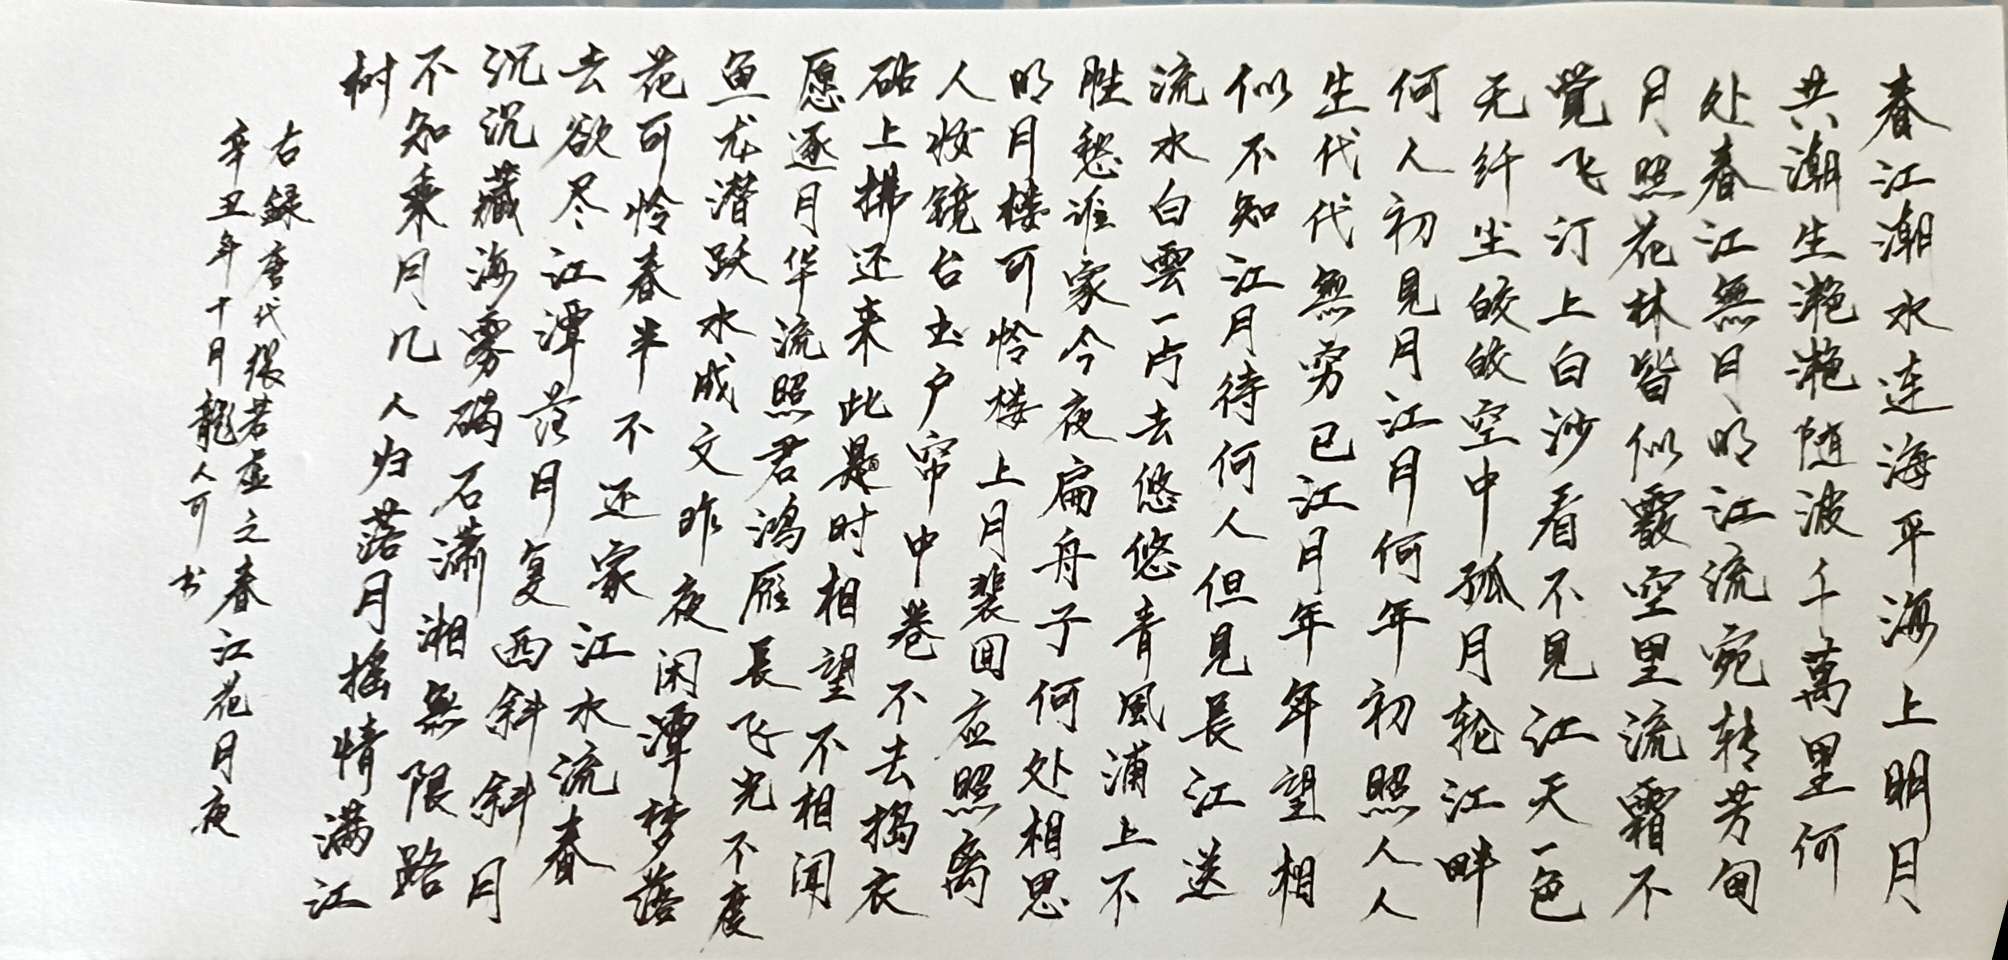 春江潮水连海平海上明月
共潮生滟滟随波千萬里何
处春江無月明江流宛转芳甸
月照花林皆似霰空里流霜不
覺飞汀上白沙看不见江天一色
无纤尘皎皎空中孤月轮江畔
何人初见月江月何年初照人人
生代代無穷已江月年年望相
似不知江月待何人但见長江送
流水白雲一片去悠悠青風浦上不
胜愁谁家今夜扁舟子何处相思
明月楼可怜楼上月裴回应照离
人妆镜台玉户帘中卷不去捣衣
砧上拂还来此是时相望不相闻
愿逐月华流照君鸿雁長飞光不度
鱼龙潜跃水成文昨夜闲潭梦落
花可怜春半不还家江水流春
去欲尽江潭落月复西斜斜月
沉沉藏海雾碣石潇湘無限路
不知乘月几人归落月摇情满江
树
右録唐代張若虚之春江花月夜
辛丑年十月龍人可书